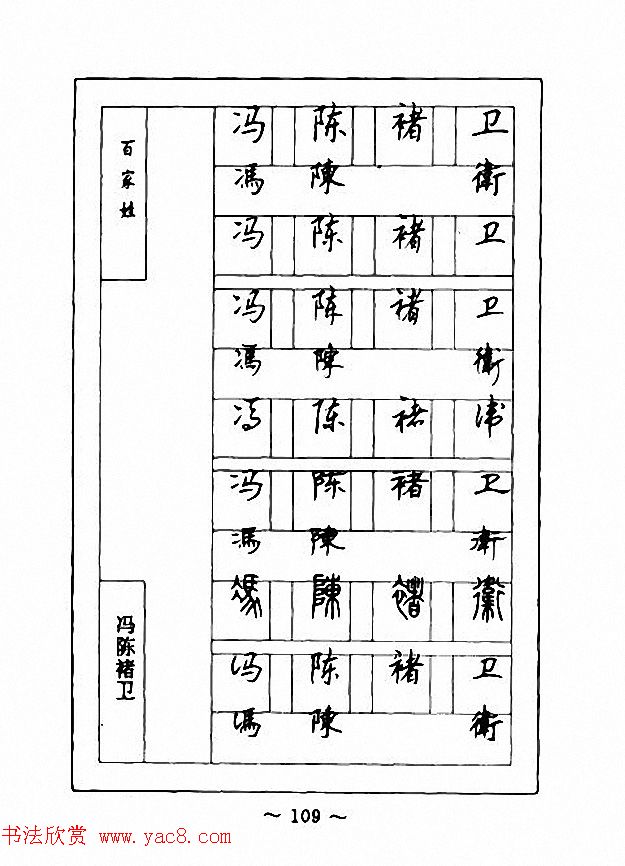 百家姓
冯 陈 褚 卫
馮 陳 衛
冯 陈 褚 卫
冯 陈 褚 卫
馮 陳 衛
冯 陈 褚 卫
冯 陈 褚 卫
馮 陳 衛
馮 陳 褚 衛
冯 陈 褚 卫
馮 陳 衛
冯陈褚卫
~ 109 ~
书法欣赏 www.yac8.com